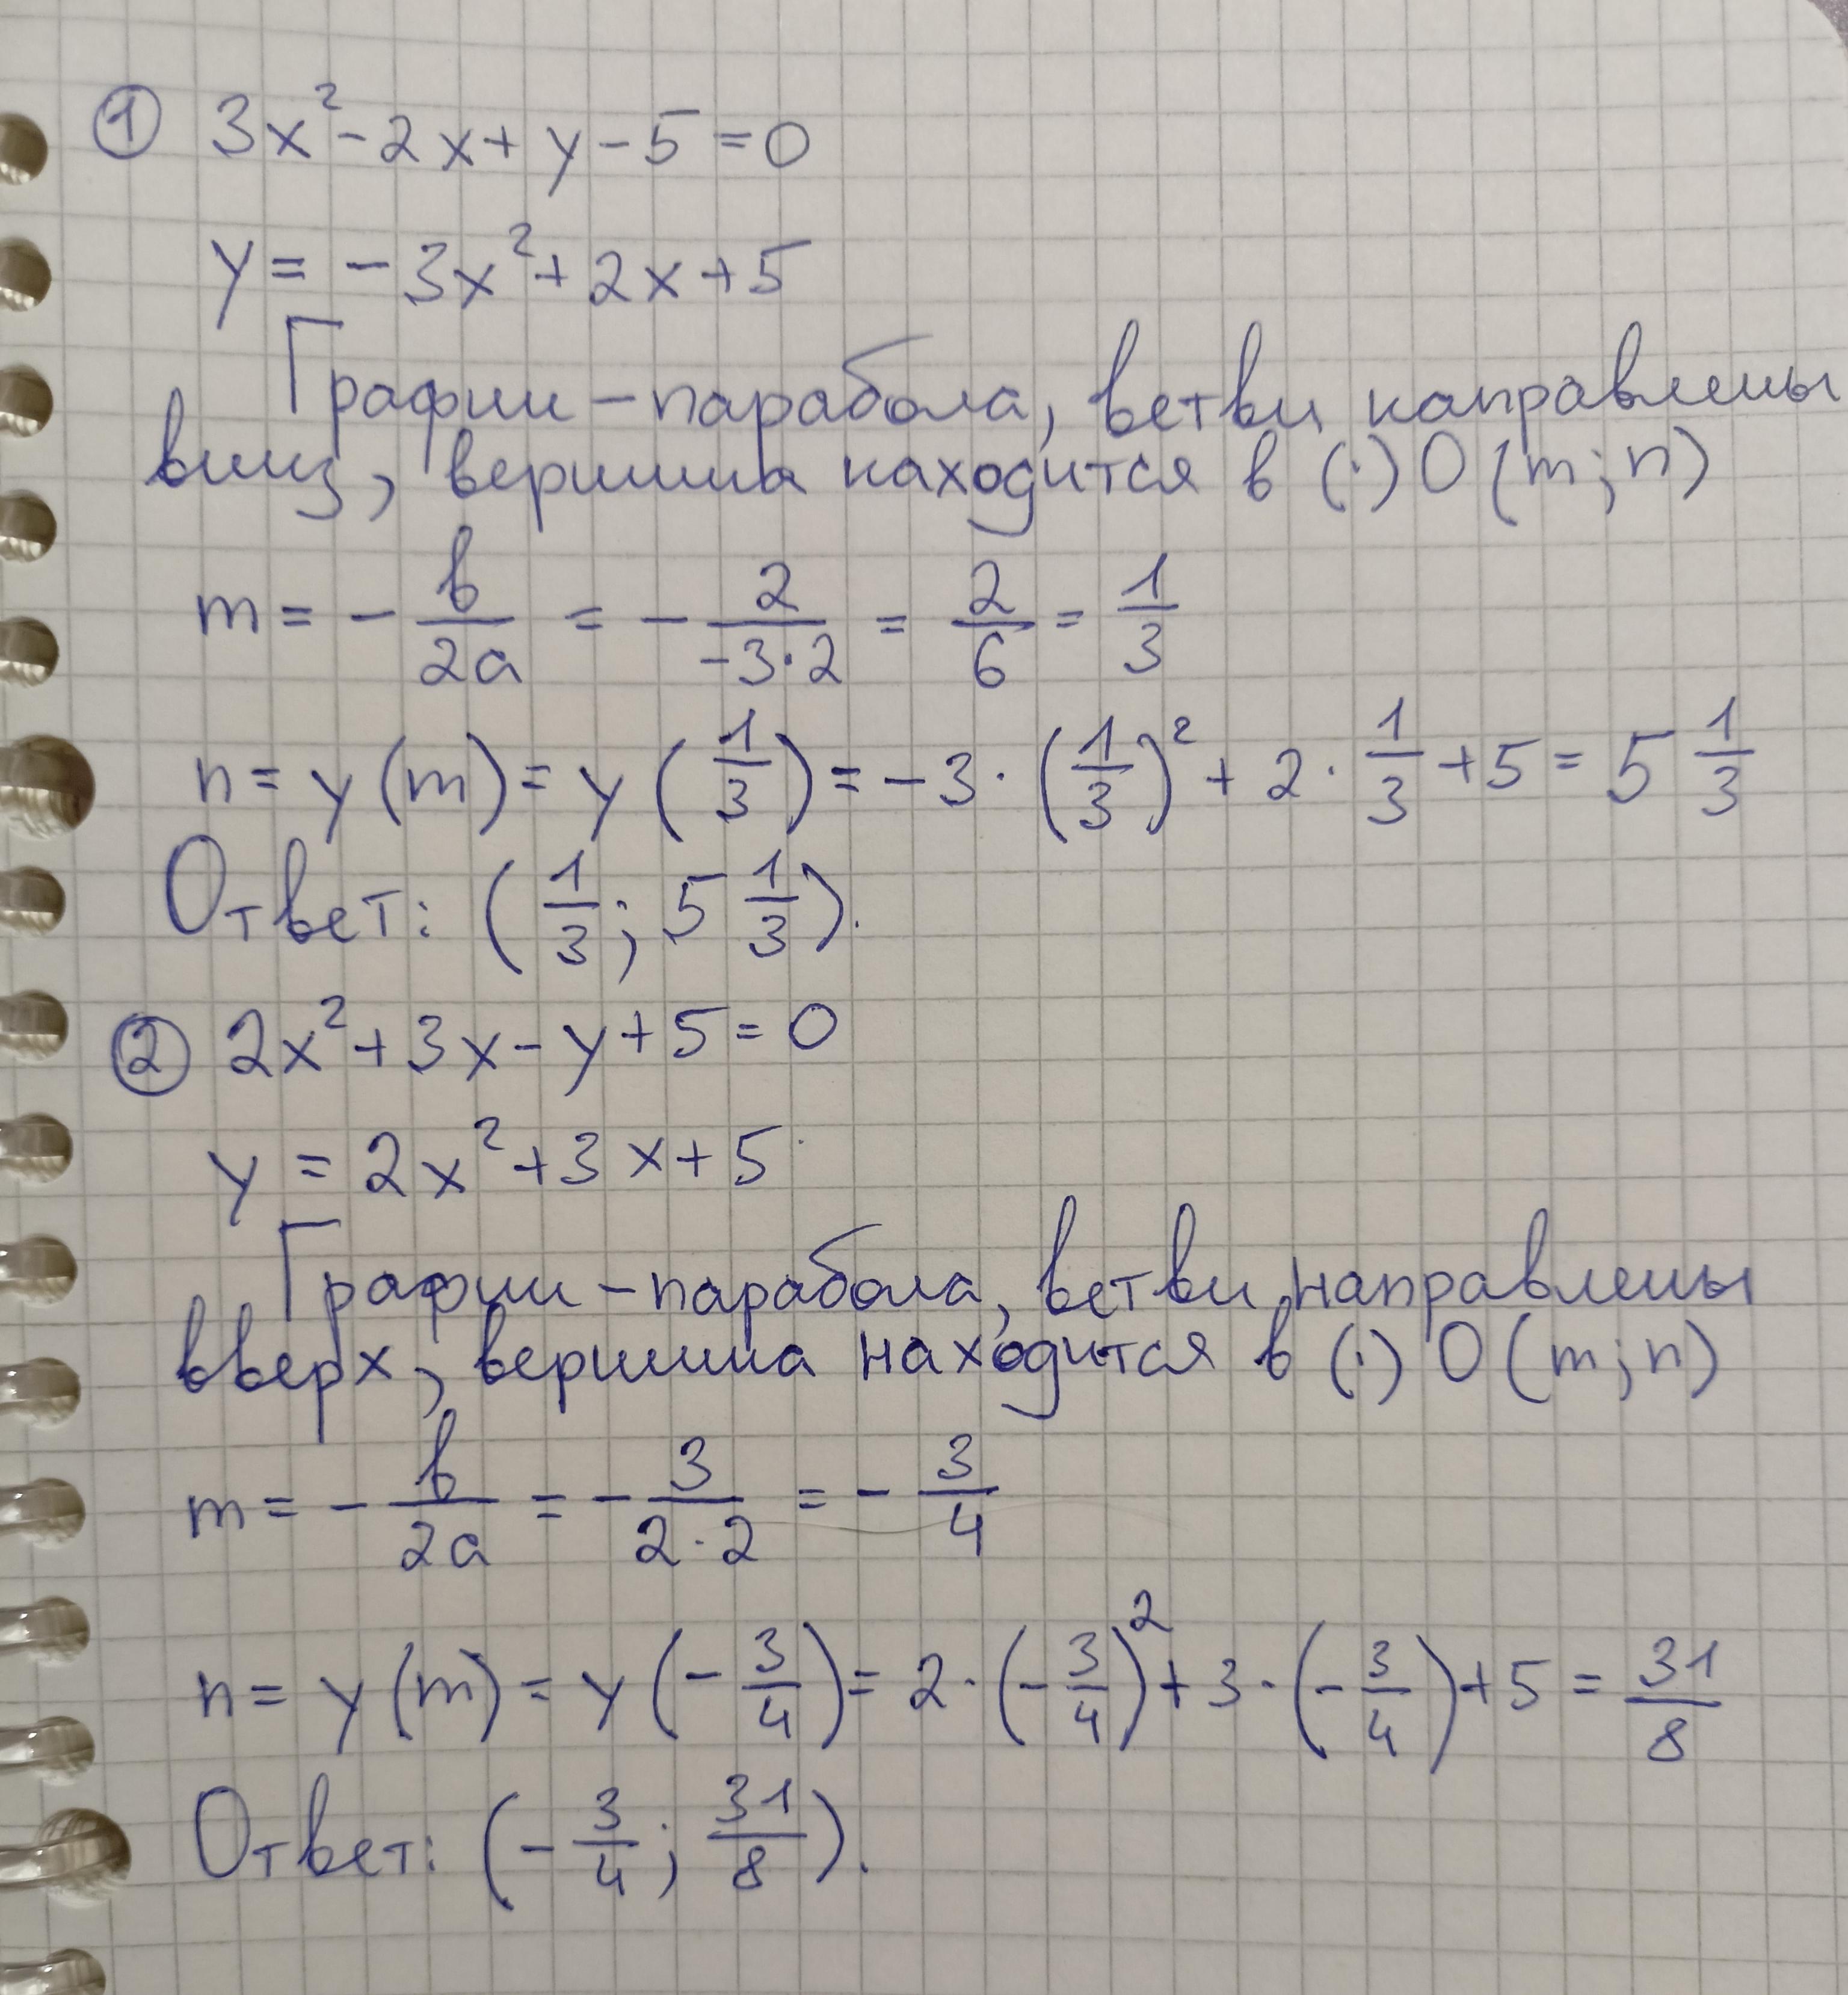 ① 3x² - 2x + y - 5 = 0
y = - 3x² + 2x + 5
График – парабола, ветви направлены
вниз, вершина находится в (·) O (m; n)
m = - b/2a = - 2/(-3·2) = 2/6 = 1/3
n = y (m) = y (1/3) = - 3 · (1/3)² + 2 · 1/3 + 5 = 5 1/3
Ответ: (1/3; 5 1/3).
② 2x² + 3x - y + 5 = 0
y = 2x² + 3x + 5
График – парабола, ветви направлены
вверх, вершина находится в (·) O (m; n)
m = - b/2a = - 3/(2·2) = - 3/4
n = y (m) = y (- 3/4) = 2 · (- 3/4)² + 3 · (- 3/4) + 5 = 31/8
Ответ: (- 3/4; 31/8).